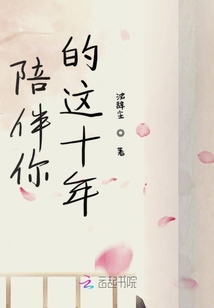 陪伴你
的这十年
沈辞尘 ◎ 著
云起书院